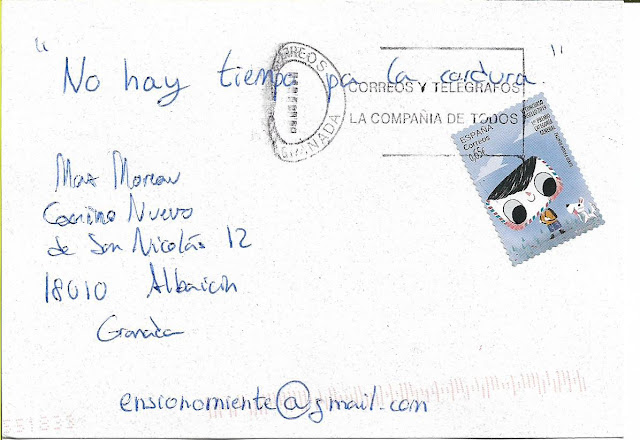 " No hay tiempo pa la cordura. "
CORREOS
GRANADA
CORREOS Y TELEGRAFOS
LA COMPAÑIA DE TODOS
ESPAÑA
Correos
0,45€
Max Moreau
Camino Nuevo
de San Nicolás 12
18010 Albaicín
Granada
ensionomiente@gmail.com
551835